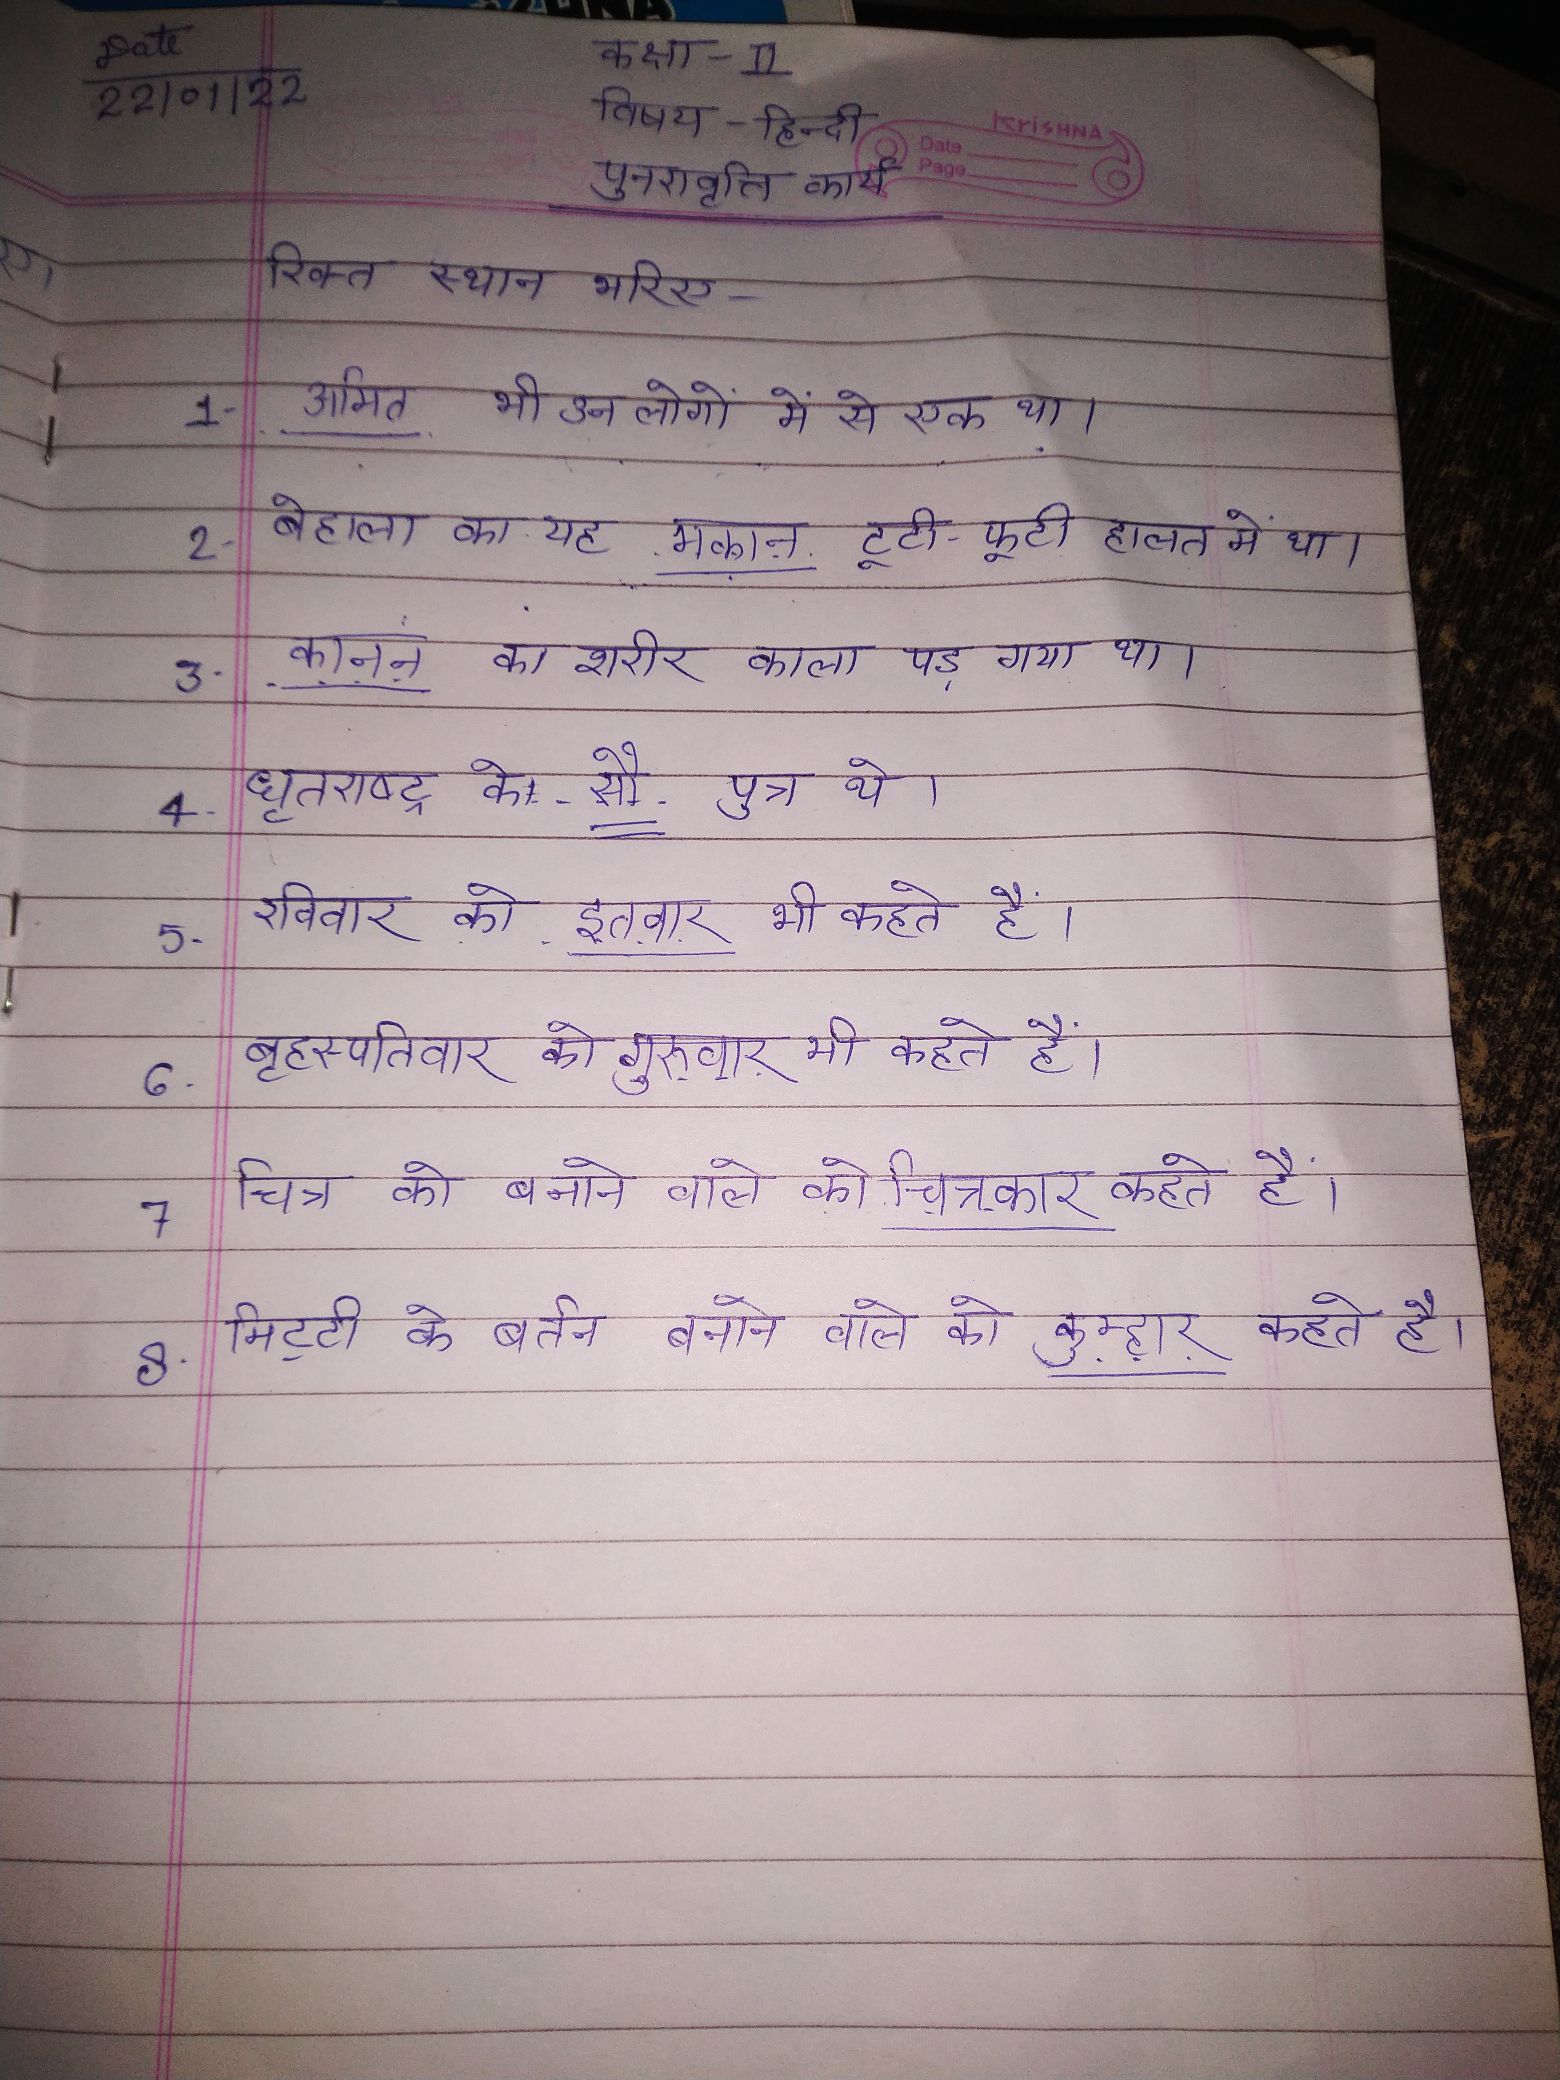 Date
22/01/22
कक्षा - II
विषय - हिन्दी
KRISHNA
Date
Page
पुनरावृत्ति कार्य
रिक्त स्थान भरिए -
1- अमित भी उन लोगों में से एक था।
2- बेहाला का यह मकान टूटी-फूटी हालत में था।
3- कानन का शरीर काला पड़ गया था।
4- धृतराष्ट्र के सौ पुत्र थे।
5- रविवार को इतवार भी कहते हैं।
6. बृहस्पतिवार को गुरुवार भी कहते हैं।
7 चित्र को बनाने वाले को चित्रकार कहते हैं।
8. मिट्टी के बर्तन बनाने वाले को कुम्हार कहते है।